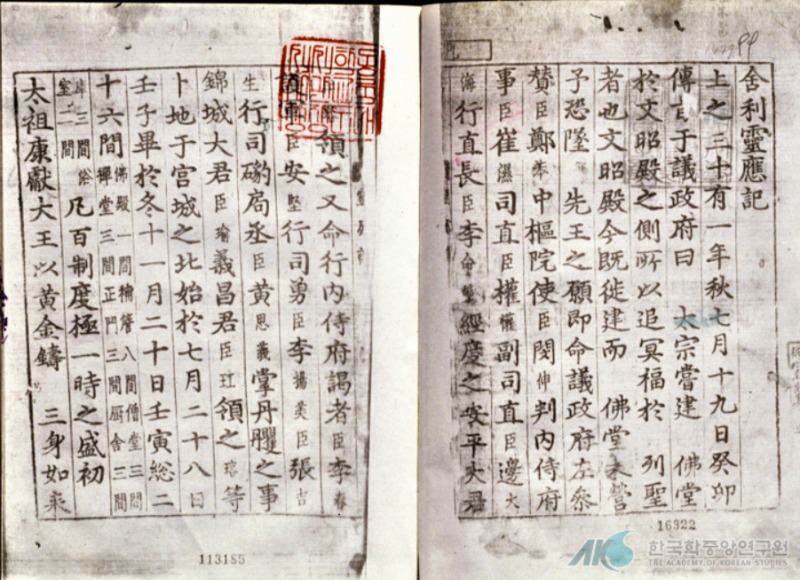 舍利靈應記
上之三十有一年秋七月十九日癸卯
傳旨于議政府曰 太宗嘗建 佛堂
於文昭殿之側所以追冥福於 列聖
者也文昭殿今既徙建而 佛堂未營
予恐墜 先王之願即命議政府左叅
贊臣鄭苯中樞院使臣閔伸判內侍府
事臣崔濕司直臣權懽副司直臣邊大
海行直長臣李命敏經度之安平大君
領之又命行內侍府謁者臣李春
臣安堅行司勇臣李揚美臣張吉
生行司磟局丞臣黃思義掌丹雘之事
錦城大君臣瑜義昌君臣玒領之瑢等
卜地于宮城之北始於七月二十八日
壬子畢於冬十一月二十日壬寅総二
十六間佛殿一間補簷八間僧堂三間禪堂三間正門三間厨舍三間
庫三間浴室二間凡百制度極一時之盛初
太祖康獻大王以黃金鑄 三身如来
16322
113185
AKS 한국학중앙연구원
THE ACADEMY OF KOREAN STUDIES